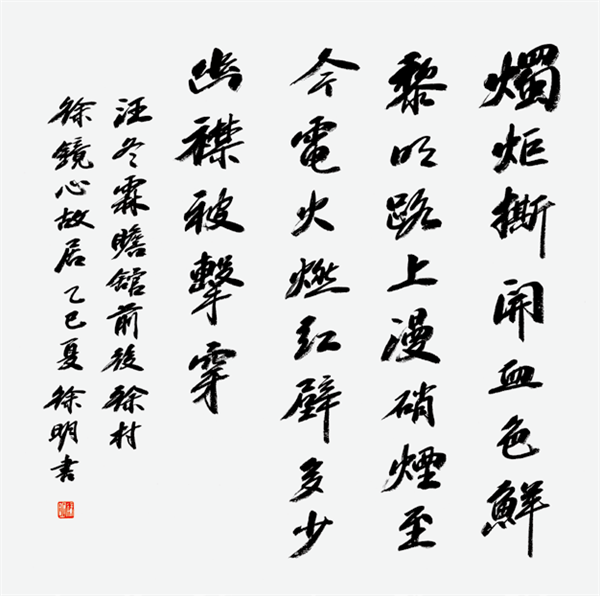 燭炬撕開血色鮮
黎明路上漫硝煙至
今電火燃紅壁多少
幽襟被擊穿
汪冬霖瞻館前後徐村
徐鏡心故居乙巳夏徐明書